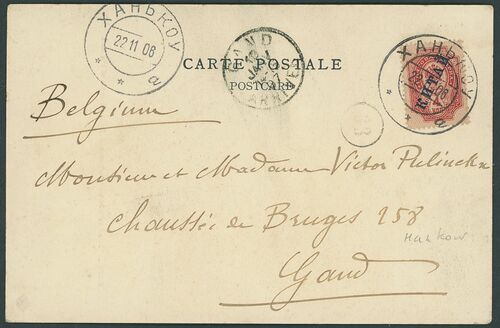 ХАНЬКОУ
22 11 06
a
GAND
ARRIVÉE
CARTE POSTALE
POSTCARD
ХАНЬКОУ
a
КИТАЙ
Belgium
Monsieur et Madame Victor Pulinckx
Chaussée de Bruges 258
Hankow
Gand